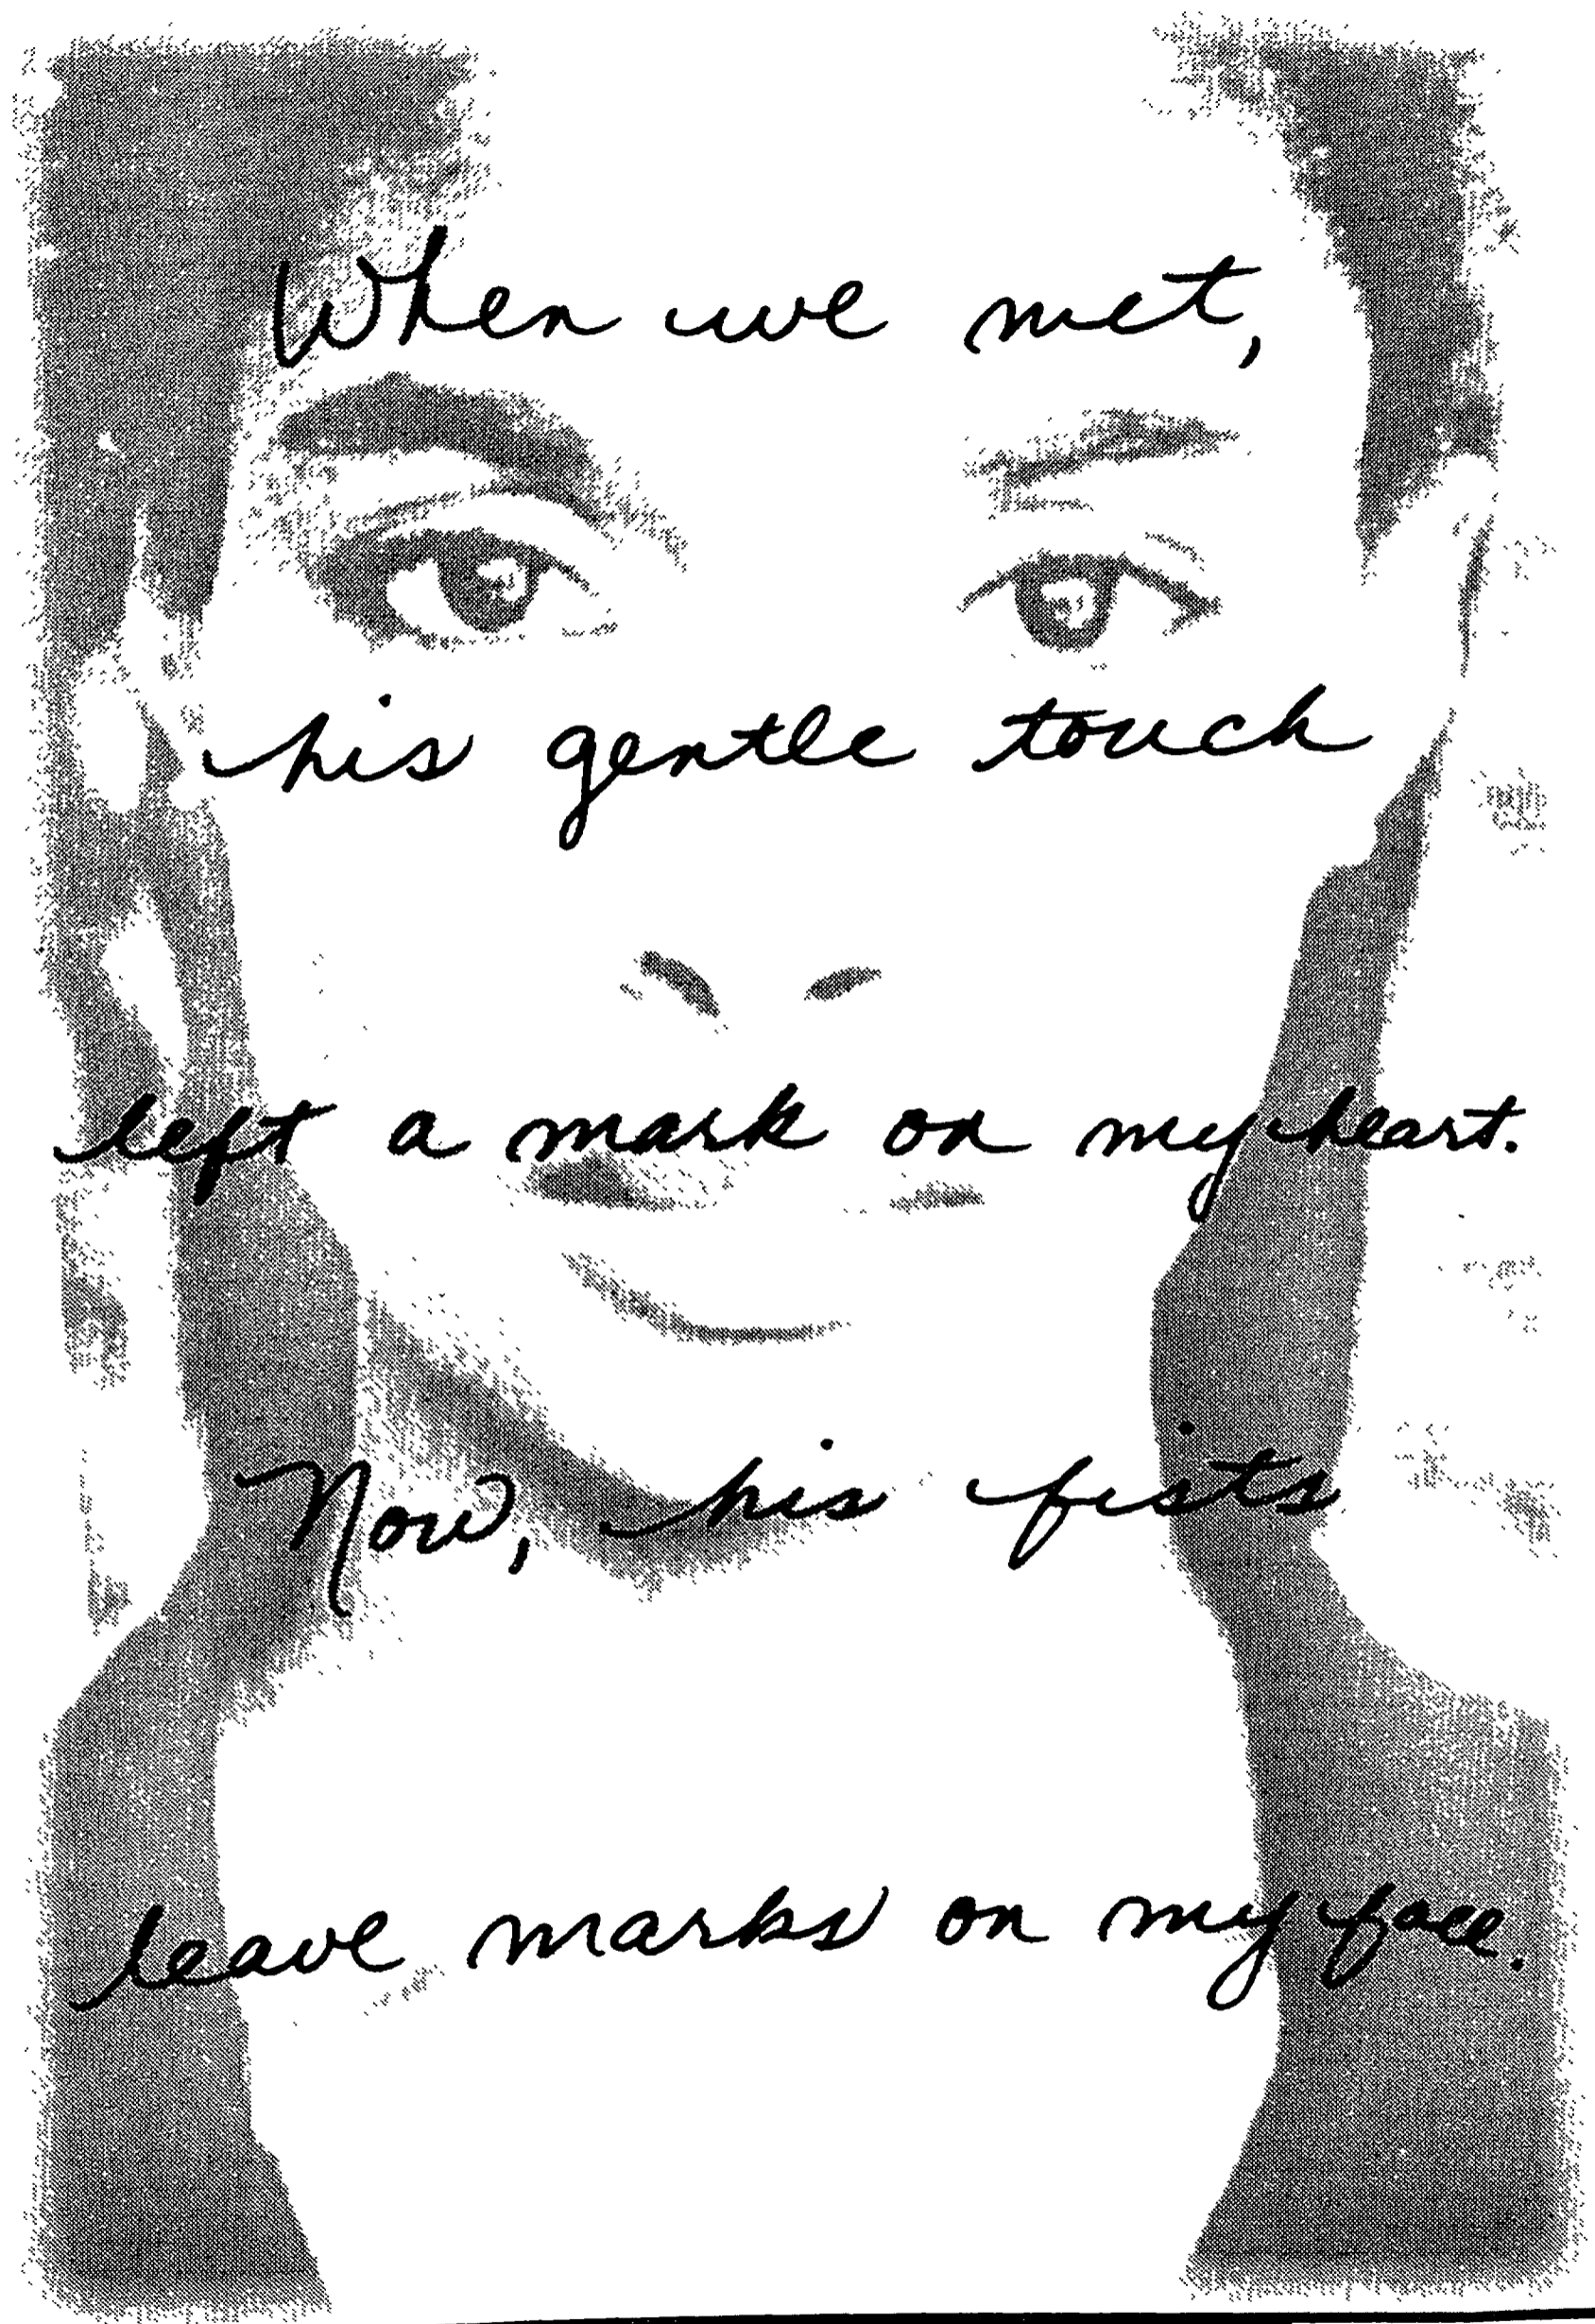 When we met,
his gentle touch
left a mark on my heart.
Now, his fists
leave marks on my face.